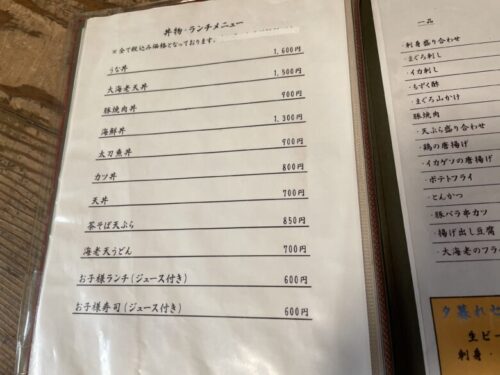 丼物・ランチメニュー
※全て税込み価格となっております。
うな丼 1,600円
大海老天丼 1,500円
豚焼肉丼 900円
海鮮丼 1,300円
太刀魚丼 900円
カツ丼 800円
天丼 700円
茶そば天ぷら 850円
海老天うどん 700円
お子様ランチ(ジュース付き) 600円
お子様寿司(ジュース付き) 600円
一品
・刺身盛り合わせ
・まぐろ刺し
・イカ刺し
・もずく酢
・まぐろ山かけ
豚焼肉
・天ぷら盛り合わせ
・鶏の唐揚げ
・イカゲソの唐揚げ
・ポテトフライ
・とんかつ
・豚バラ串カツ
・揚げ出し豆腐
・大海老のフラ
夕暮れセ
生ビー
刺身・